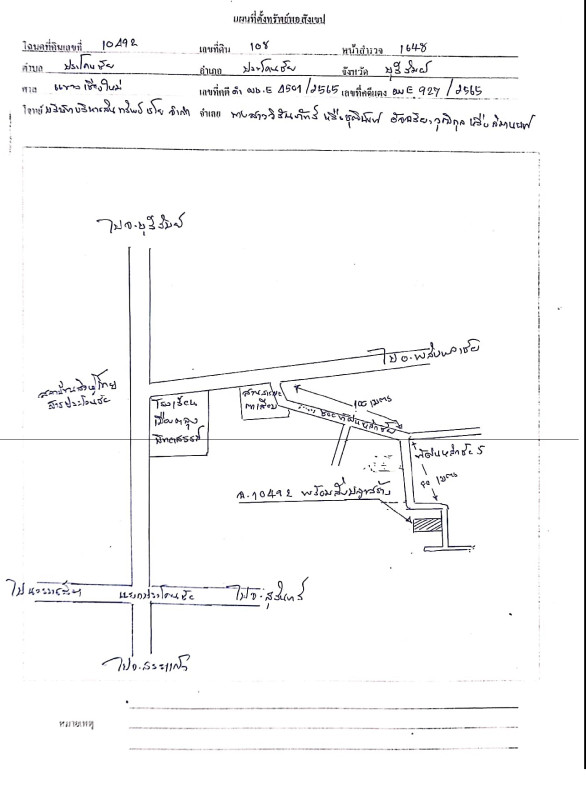 แผนที่ตั้งทรัพย์พอสังเขป
โฉนดที่ดินเลขที่ 10492 เลขที่ดิน 108 หน้าสำรวจ 1648
ตำบล ประโคนชัย อำเภอ ประโคนชัย จังหวัด บุรีรัมย์
ศาล แพ่งเชียงใหม่ เลขที่คดีดำ ผบ.E 2501/2565 เลขที่คดีแดง ผบ.E 927/2565
โจทก์ บริษัทบริหารสินทรัพย์ จำกัด จำเลย
ไป จ.บุรีรัมย์
ไป อ.พลับพลาชัย
โรงเรียน
เมืองตลุง
พิทยาสรรพ์
100 เมตร
90 เมตร
ฉ.10492 พร้อมสิ่งปลูกสร้าง
ไปนางรอง
แยกประโคนชัย
ไป จ.สุรินทร์
ไป จ.สระแก้ว
หมายเหตุ